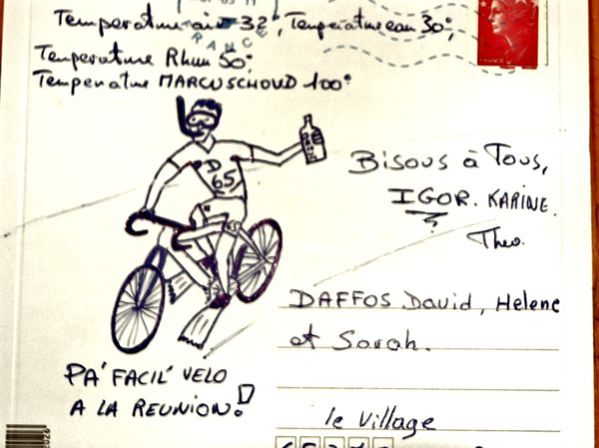 Temperature air 32°, Temperature eau 30°,
FRANCE
Temperature Rhum 50°
Temperature MARCUSCHOUD 100°
D
65
Bisous à Tous,
IGOR. KARINE.
Theo.
DAFFOS David, Helene
et Sarah.
PA' FACIL' VELO
A LA REUNION!
le Village